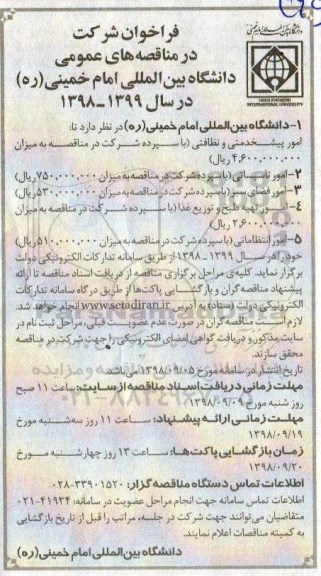 فراخوان شرکت
در مناقصه‌های عمومی
دانشگاه بین‌المللی امام خمینی (ره)
در سال ۱۳۹۹-۱۳۹۸
IMAM KHOMEINI
INTERNATIONAL UNIVERSITY
۱- دانشگاه بین‌المللی امام خمینی(ره) در نظر دارد تا:
امور پیشخدمتی و نظافتی (با سپرده شرکت در مناقصه به میزان
۴,۶۰۰,۰۰۰,۰۰۰ ریال)
۲- امور تاسیساتی (با سپرده شرکت در مناقصه به میزان ۷۵۰,۰۰۰,۰۰۰ ریال)
۳- امور فضای سبز (با سپرده شرکت در مناقصه به میزان ۵۳۰,۰۰۰,۰۰۰ ریال)
۴- امور تهیه طبخ و توزیع غذا (با سپرده شرکت در مناقصه به میزان
۲,۶۰۰,۰۰۰,۰۰۰ ریال)
۵- امور انتظاماتی (با سپرده شرکت در مناقصه به میزان ۵۱۰,۰۰۰,۰۰۰ ریال)
خود را در سال ۱۳۹۹-۱۳۹۸ از طریق سامانه تدارکات الکترونیکی دولت
برگزار نماید. کلیه‌ی مراحل برگزاری مناقصه از دریافت اسناد مناقصه تا ارائه
پیشنهاد مناقصه گران و بازگشایی پاکت‌ها از طریق درگاه سامانه تدارکات
الکترونیکی دولت (ستاد) به آدرس www.setadiran.ir انجام خواهد شد.
لازم است مناقصه گران در صورت عدم عضویت قبلی، مراحل ثبت نام در
سایت مذکور و دریافت گواهی امضای الکترونیکی را جهت شرکت در مناقصه
محقق سازند.
تاریخ انتشار در سامانه مورخ ۱۳۹۸/۰۹/۰۵ می باشد.
مهلت زمانی دریافت اسناد مناقصه از سایت: ساعت ۱۱ صبح
روز شنبه مورخ ۱۳۹۸/۰۹/۰۹
مهلت زمانی ارائه پیشنهاد: ساعت ۱۱ روز سه‌شنبه مورخ
۱۳۹۸/۰۹/۱۹
زمان بازگشایی پاکت‌ها: ساعت ۱۳ روز چهارشنبه مورخ
۱۳۹۸/۰۹/۲۰
اطلاعات تماس دستگاه مناقصه گزار: ۳۳۹۰۱۵۲۰-۰۲۸
اطلاعات تماس سامانه جهت انجام مراحل عضویت در سامانه: ۴۱۹۳۴-۰۲۱
متقاضیان می‌توانند جهت شرکت در جلسه، مراتب را قبل از تاریخ بازگشایی
به کمیته مناقصات اعلام نمایند.
دانشگاه بین‌المللی امام خمینی (ره)